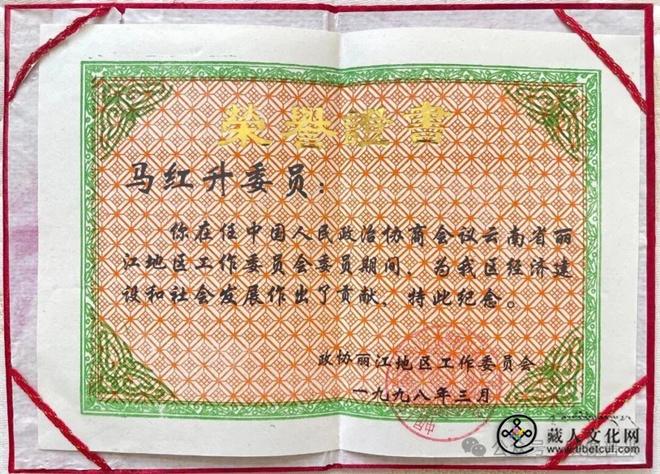 荣誉證書
马红升委员：
你在任中国人民政治协商会议云南省丽
江地区工作委员会委员期间，为我区经济建
设和社会发展作出了贡献，特此纪念。
政协丽江地区工作委员会
一九九八年三月
藏人文化网
www.tibetcul.com